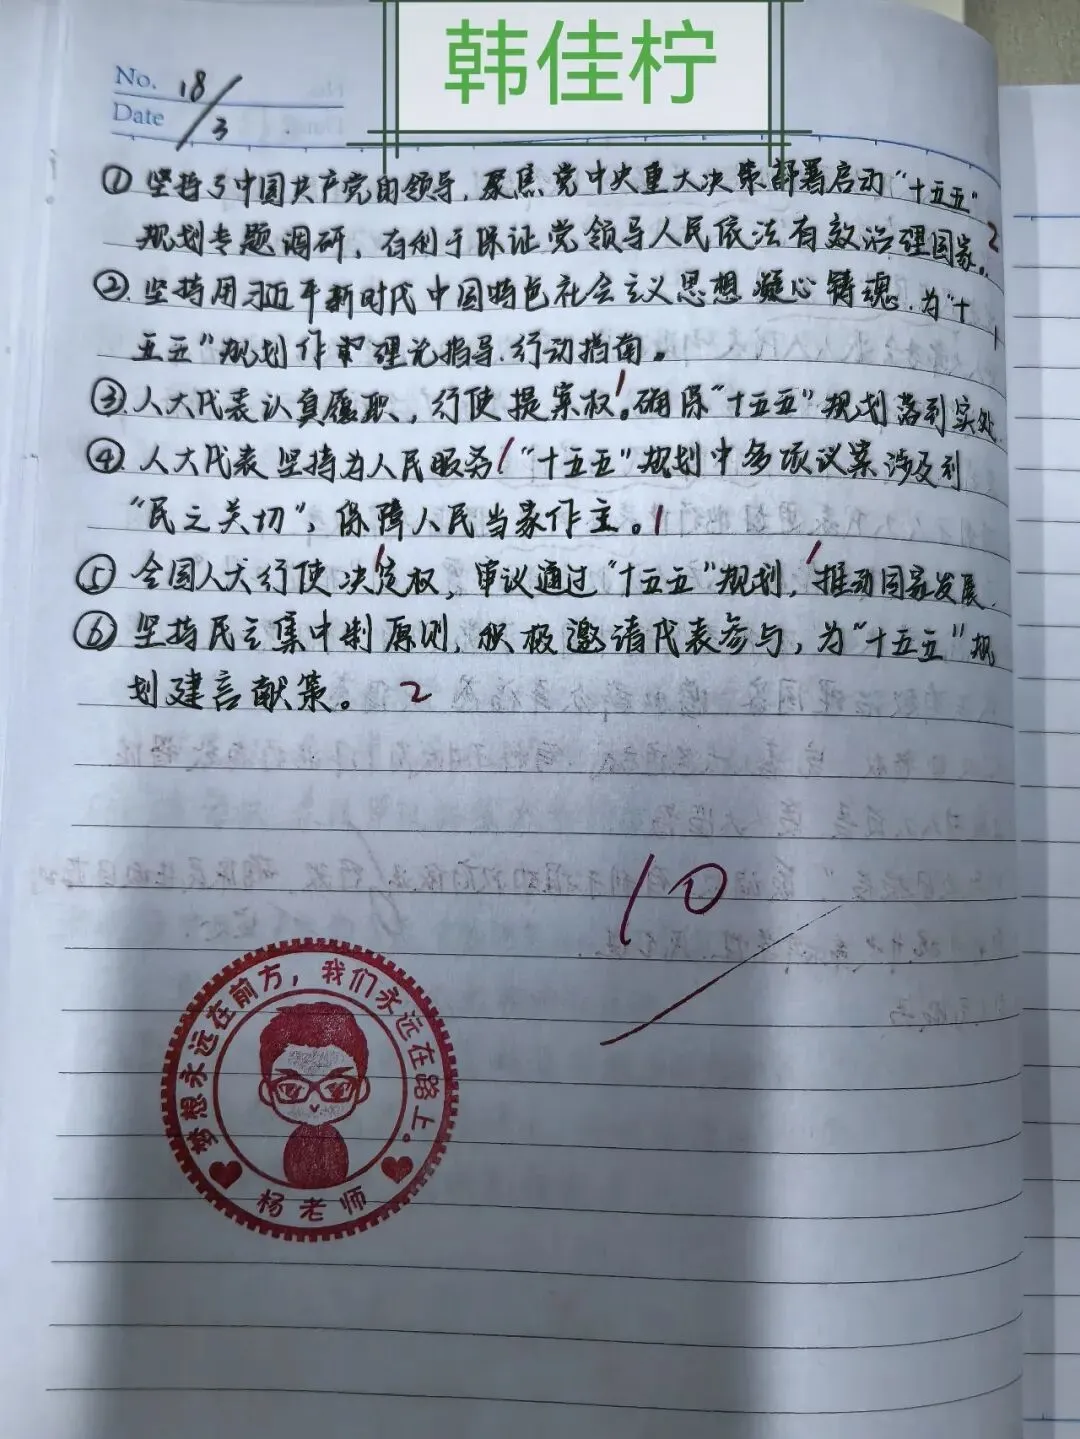 韩佳柠
No. 18/3
Date
①坚持了中国共产党的领导,聚焦党中央重大决策部署启动“十五五”
规划专题调研,有利于保证党领导人民依法有效治理国家。2
②.坚持用习近平新时代中国特色社会主义思想凝心铸魂.为“十
五五”规划作审理论指导.行动指南。
③.人大代表认真履职,行使提案权。确保“十五五”规划落到实处
④.人大代表坚持为人民服务,“十五五”规划中多项议案涉及到
“民之关切”,保障人民当家作主。1
⑤全国人大行使决定权,审议通过“十五五”规划,推动国家发展.
⑥坚持民主集中制原则,积极邀请代表参与,为“十五五”规
划建言献策。2
10
梦想永远在前方,我们永远在路上。
杨老师